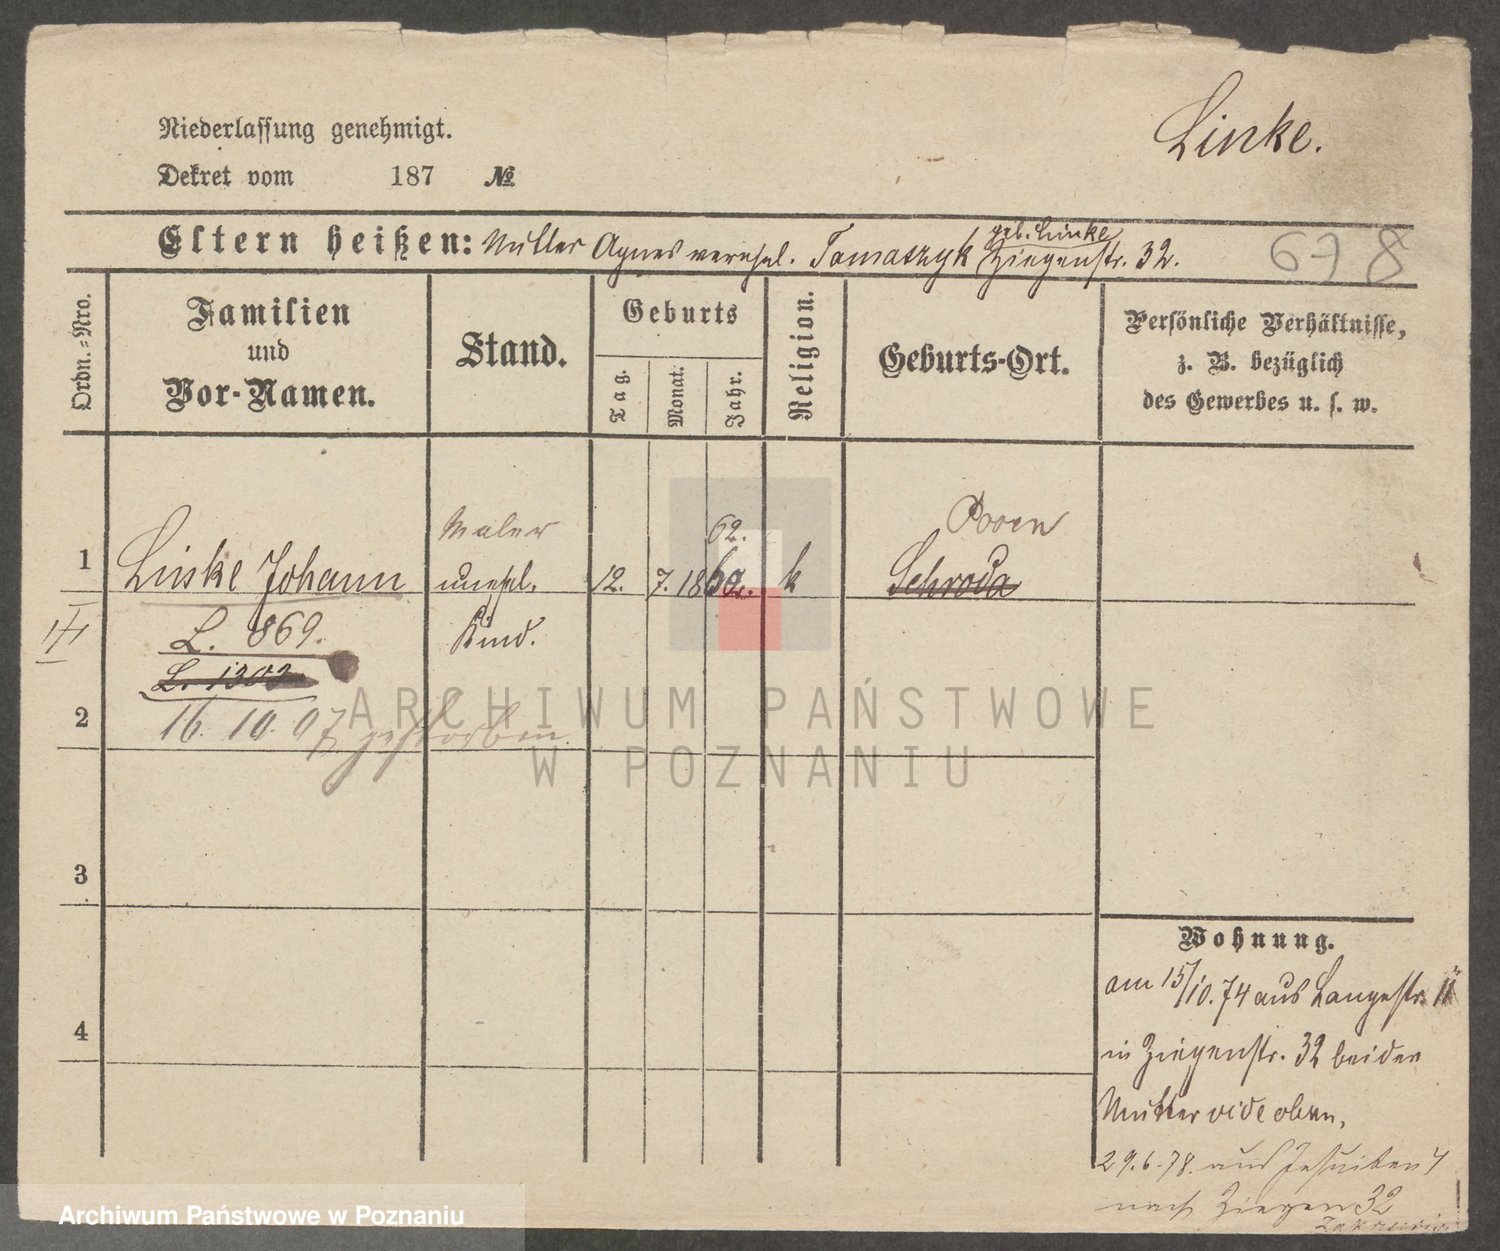 Niederlassung genehmigt.
Linke.
Dekret vom 187 №
geb. Linke
Eltern heißen: Mutter Agnes verehel. Tomaszyk Ziegenstr. 32.
678
Ordn.=Nro.
Familien
und
Vor-Namen.
Stand.
Geburts
Tag.
Monat.
Jahr.
Religion.
Geburts-Ort.
Persönliche Verhältnisse,
z. B. bezüglich
des Gewerbes u. s. w.
Maler
62.
Posen
1
Linke Johann
unehel.
12. 7. 1860.
k
Schroda
L. 869.
Kind.
L. 1303
2
16. 10. 07 gestorben
3
4
Wohnung.
am 15/10. 74 aus Langestr. 11
in Ziegenstr. 32 bei der
Mutter vide oben,
29. 6. 78. aus Jesuiten 4
nach Ziegen 32
ARCHIWUM PAŃSTWOWE
W POZNANIU
Archiwum Państwowe w Poznaniu